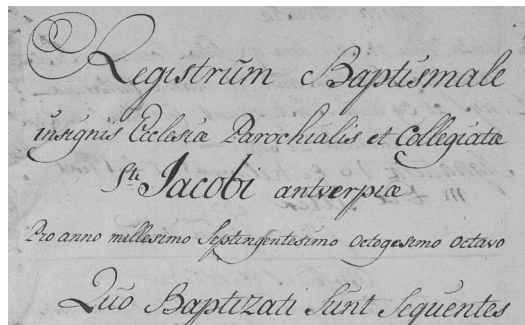 Registrum Baptismale
insignis Ecclesiæ Parochialis et Collegiatæ
Sti Jacobi antverpiæ
Pro anno millesimo Septingentesimo Octogesimo Octavo
Quo Baptizati Sunt Sequentes